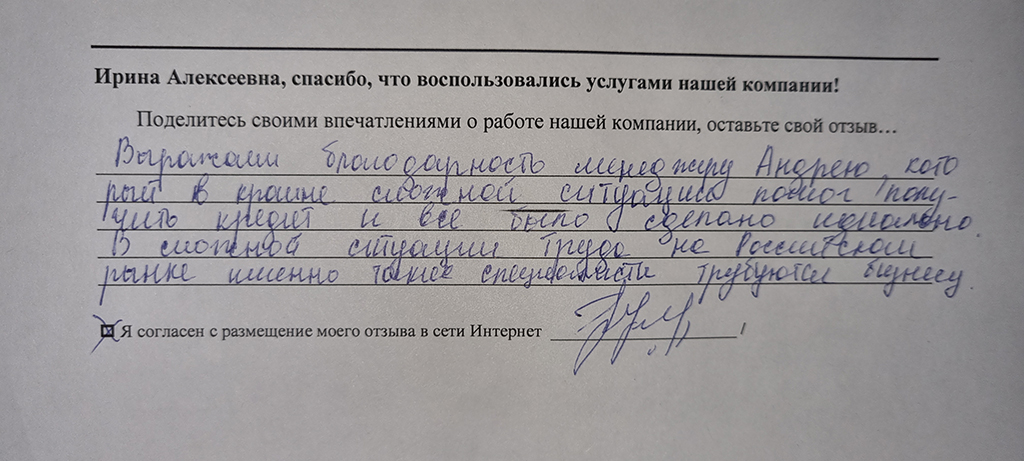 Ирина Алексеевна, спасибо, что воспользовались услугами нашей компании!
Поделитесь своими впечатлениями о работе нашей компании, оставьте свой отзыв…
Выражаем благодарность менеджеру Андрею, кото
рый в крайне сложной ситуации помог полу-
чить кредит и все было сделано идеально.
В сложной ситуации труда на Российском
рынке именно такие специалисты требуются бизнесу.
Я согласен с размещение моего отзыва в сети Интернет